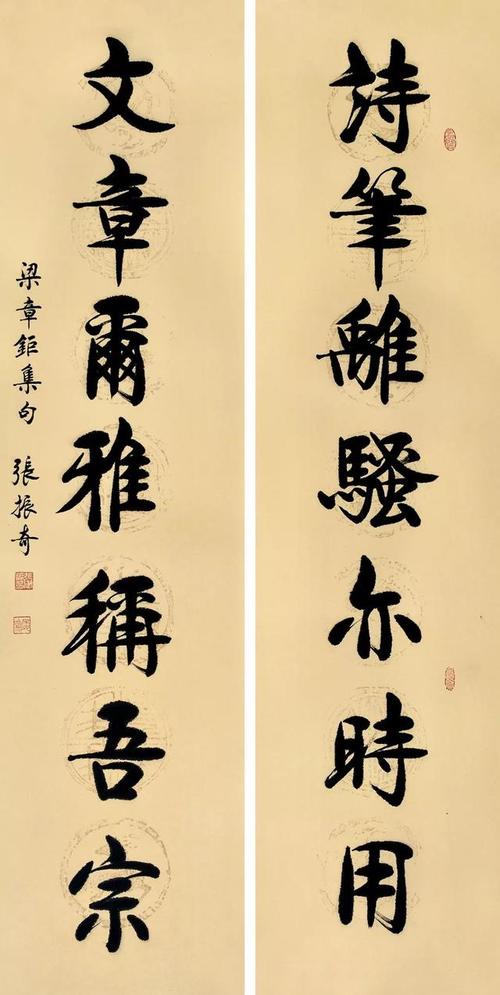 詩筆離騷亦時用
文章爾雅稱吾宗
梁章鉅集句 張振奇